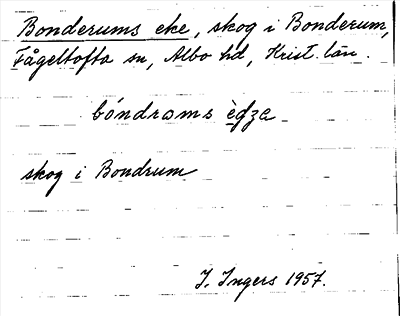 Bonderums eke, skog i Bonderum,
Fågeltofta sn, Albo hd, Krist. län.
bóndrəms
skog i Bondrum
J. Ingers 1957.